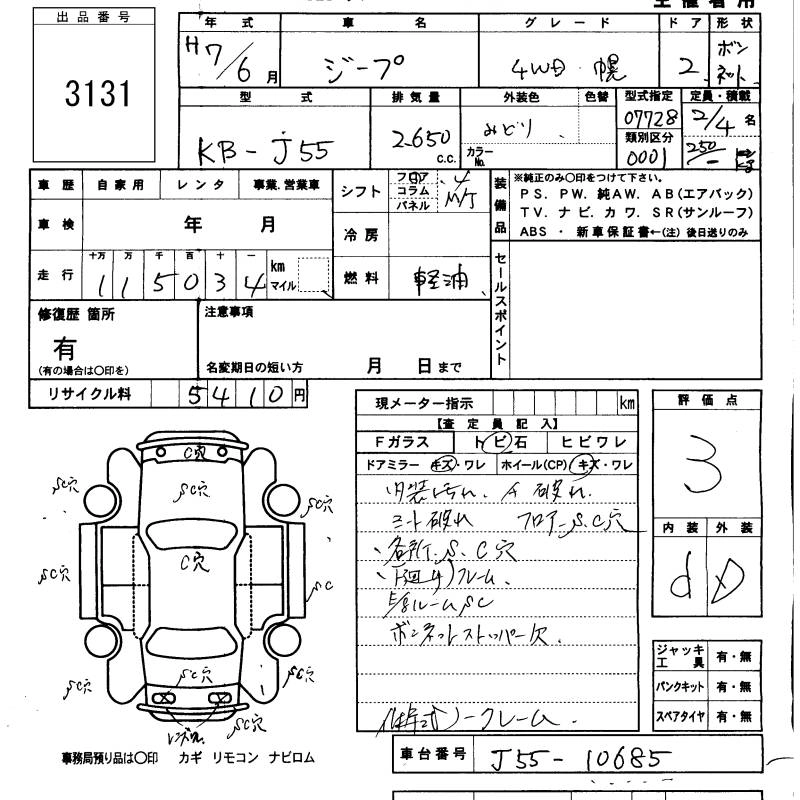 出品番号
3131
年式 車名 グレード ドア 形状
H7/6月 ジープ 4WD・幌 2 ボンネット
型式 排気量 外装色 色替 型式指定 定員・積載
KB-J55 2650 C.C. みどり カラーNo. 07728 2/4 名
類別区分
0001 250 kg
車歴 自家用 レンタ 事業.営業車
車検 年 月
走行 十万 万 千 百 十 一
115034 km マイル
シフト フロア コラム パネル 4 M/T
冷房
燃料 軽油
装備品
※純正のみ〇印をつけて下さい。
PS. PW. 純AW. AB(エアバック)
TV. ナビ. カワ. SR(サンルーフ)
ABS ・ 新車保証書←(注) 後日送りのみ
セールスポイント
修復歴 箇所
有
(有の場合は〇印を)
注意事項
名変期日の短い方 月 日まで
リサイクル料 5410円
現メーター指示 km
【査定員記入】
Fガラス トビ石 ヒビワレ
ドアミラー キズ・ワレ ホイール(CP) キズ・ワレ
内装汚れ. 破れ.
シート破れ フロアーS.C穴
各所S.C穴
下廻り フレーム.
ルームSC
ボンネットストッパー欠.
ノークレーム.
評価点
3
内装 外装
d D
ジャッキ工具 有・無
パンクキット 有・無
スペアタイヤ 有・無
C穴
SC穴
SC穴
SC穴
C穴
SC穴
SC
SC穴
SC穴
SC穴
SC穴
事務局預り品は〇印 カギ リモコン ナビロム
車台番号 J55-10685